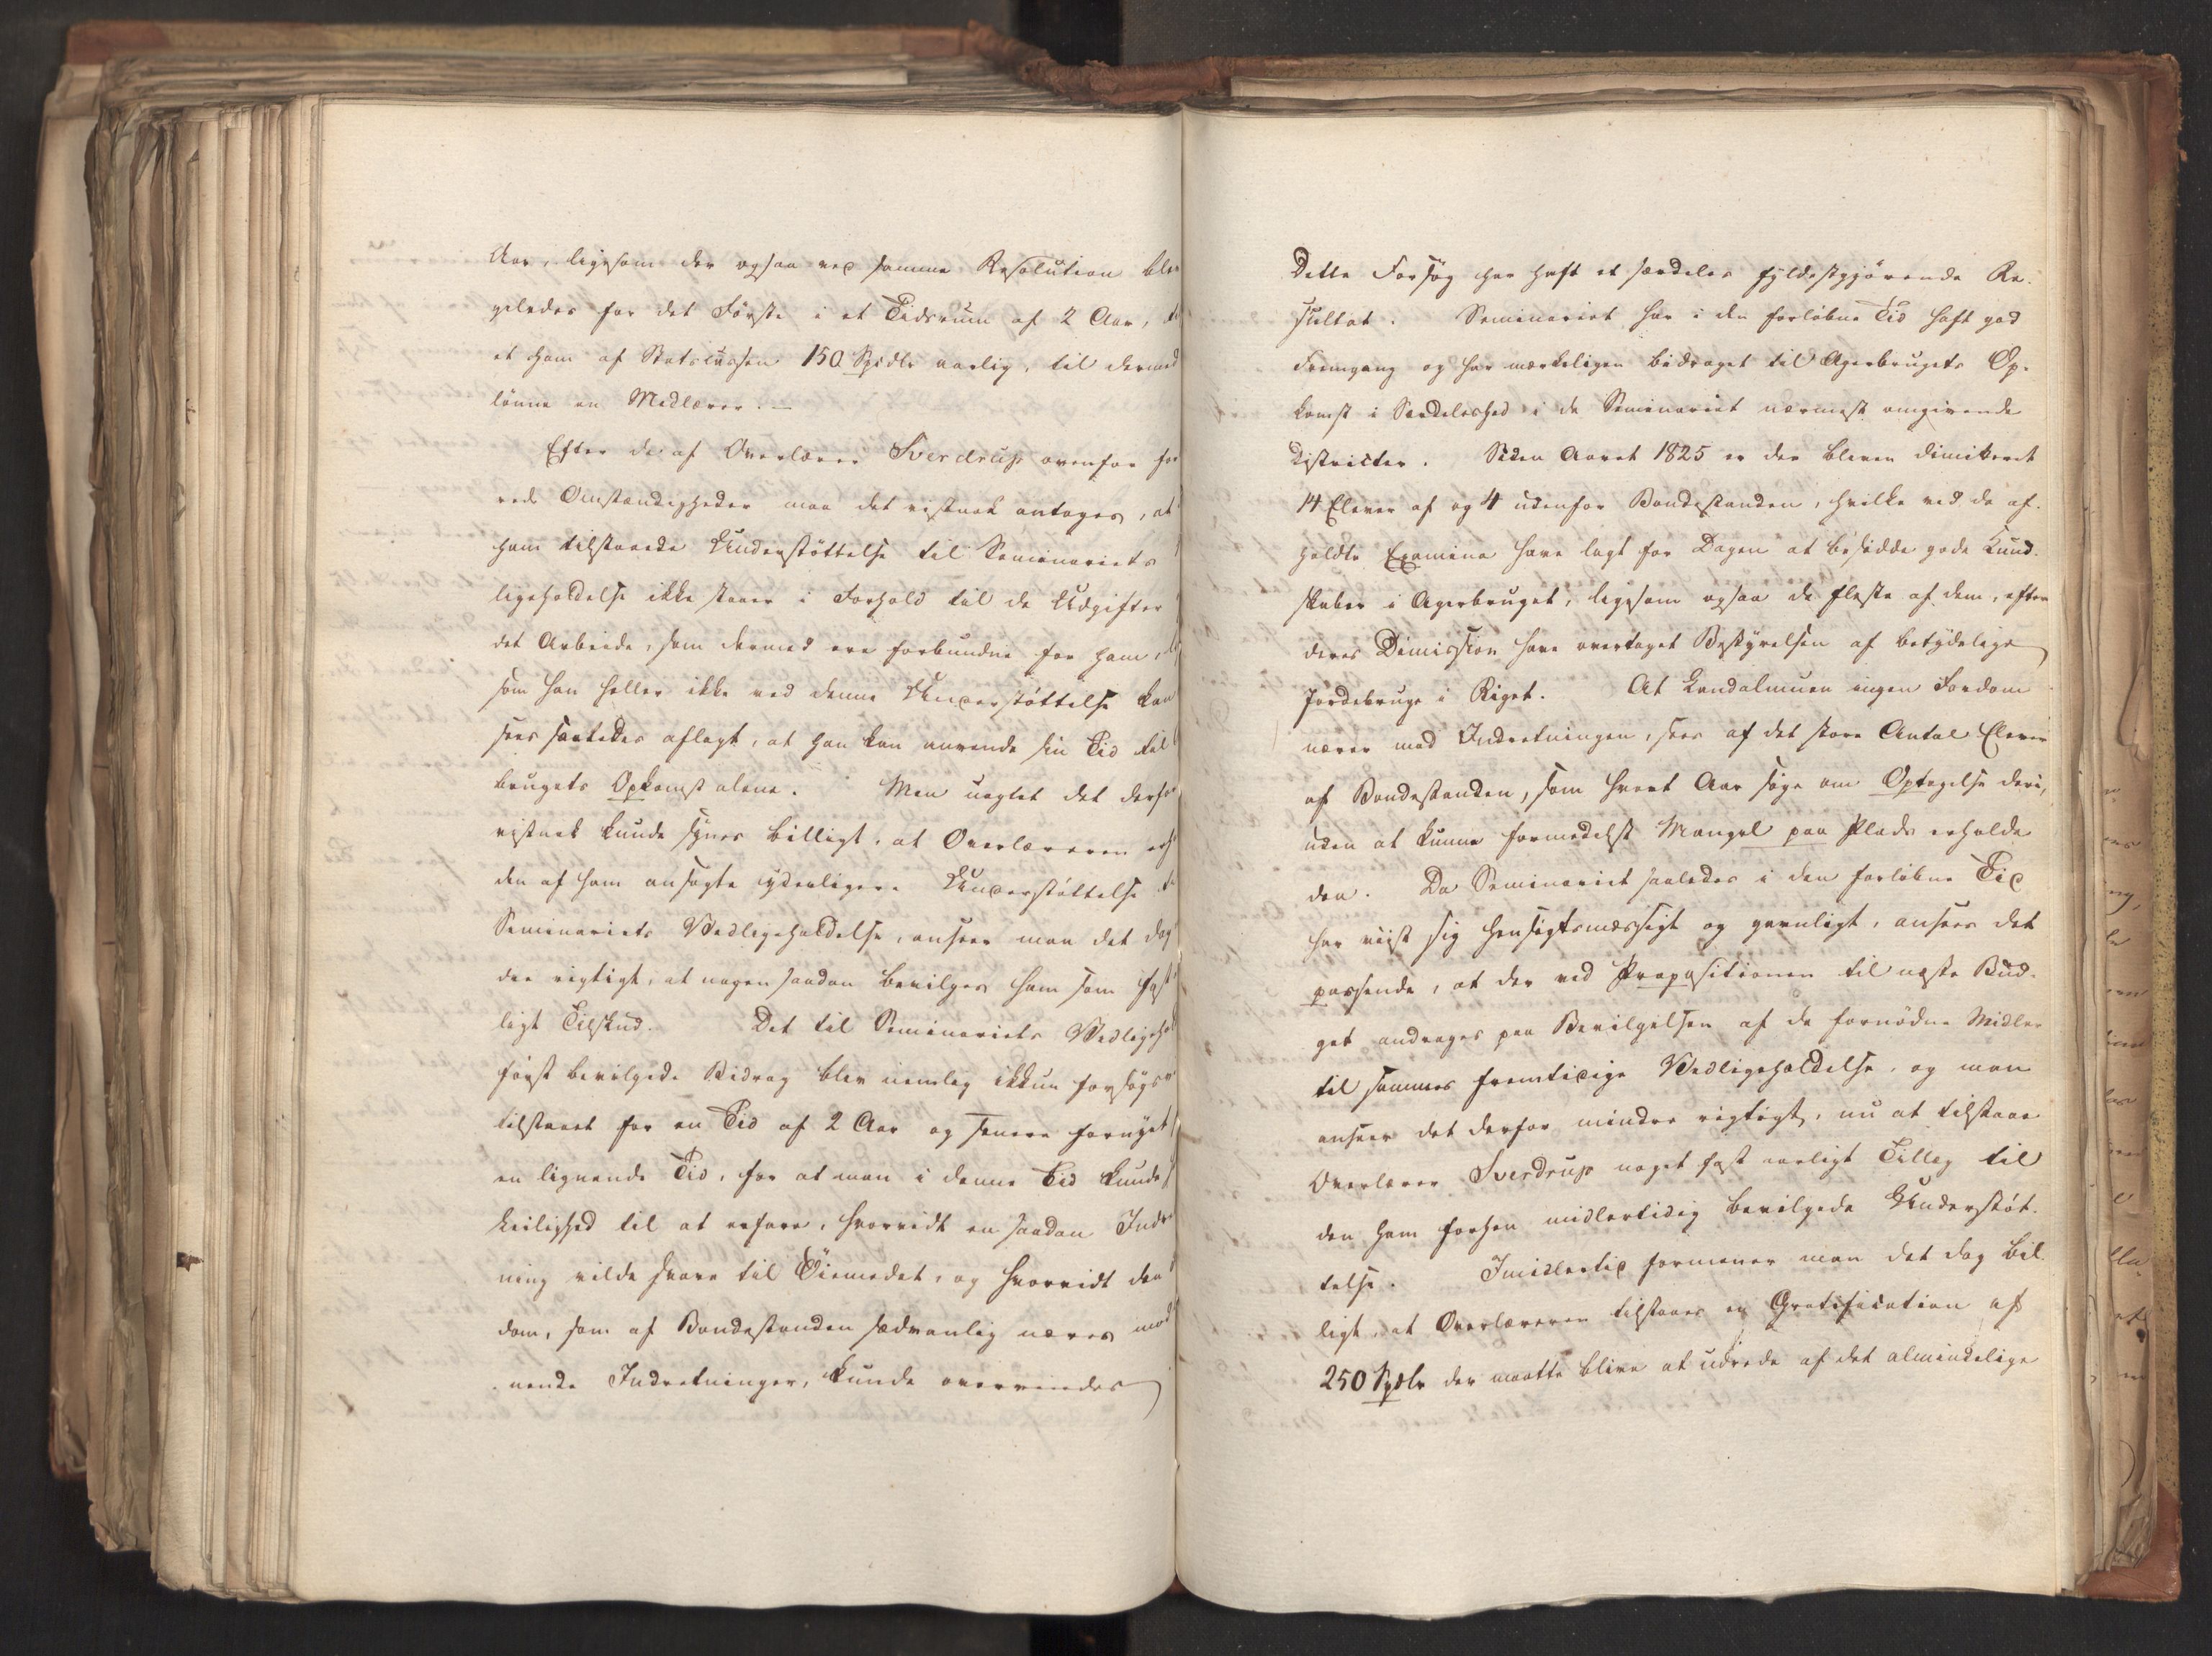 Aar, ligesom der ogsaa ved samme Resolution blev
yeledes for det Förste i et Tidsrum af 2 Aar, til
et ham af Statscassen 150 Spdlr aarlig, til dermed
lönne en Medlærer. –
Efter de af Overlærer Sverdrup ovenfor
Omstændigheder maa det vistnok antages, at
ham tilstaaede Understöttelse til Seminariets
ligeholdelse ikke staaer i Forhold til de Udgifter
det Arbeide, som dermed ere forbundne for ham,
som han heller ikke ved denne Understöttelse kan
sees saaledes aflagt, at han kan anvende sin Tid til
brugets Opkomst alene. Men uagtet det derfor
vistnok kunde synes billigt, at Overlæreren
den af ham ansögte yderligere Understöttelse
Seminariets Vedligeholdelse, anseer man det dog
der rigtigt, at nogen saadan bevilges ham som fast
ligt Tilskud. Det til Seminariets Vedligehol
först bevilgede Bidrag blev nemlig ikkun forsögs
tilstaaet for en Tid af 2 Aar og senere fornyet
en lignende Tid, for at man i denne Tid kunde
Leilighed til at erfare, hvorvidt en saadan Indr
ning vilde svare til Öiemedet, og hvorvidt den
dom, som af Bondestanden sædvanlig næres mod
nende Indretninger, kunde overvindes
Dette Forsög har havt et særdeles fyldestgjörende Re-
sultat. Seminariet har i den forlöbne Tid haft god
Fremgang og har mærkeligen bidraget til Agerbrugets Op-
komst i Særdeleshed i de Seminariet nærmest omgivende
Districter. Siden Aaret 1825 er der bleven dimitteret
14 Elever af og 4 udenfor Bondestanden, hvilke ved de af-
holdte Examina have lagt for Dagen at besidde gode Kund-
skaber i Agerbruget, ligesom ogsaa de fleste af dem, efter
deres Dimission have overtaget Bestyrelsen af betydelige
Jordebruge i Riget. At Landalmuen ingen Fordom
nærer mod Indretningen, sees af det store Antal Elever
af Bondestanden, som hvert Aar söge om Optagelse deri,
uden at kunne formedelst Mangel paa Plads erholde
den. Da Seminariet saaledes i den forlöbne Tid
har viist sig hensigtsmæssigt og gavnligt, ansees det
passende, at der ved Propositionen til næste Bud-
get andrages paa Bevilgelsen af de fornödne Midler
til sammes fremtidige Vedligeholdelse, og man
anseer det derfor mindre rigtigt, nu at tilstaae
Overlærer Sverdrup noget fast aarligt Tillæg til
den ham forhen midlertidig bevilgede Understöt-
telse. Imidlertid formener man det dog bil-
ligt, at Overlæreren tilstaaes en Gratification af
250 Spdlr der maatte blive at udrede af det almindelige